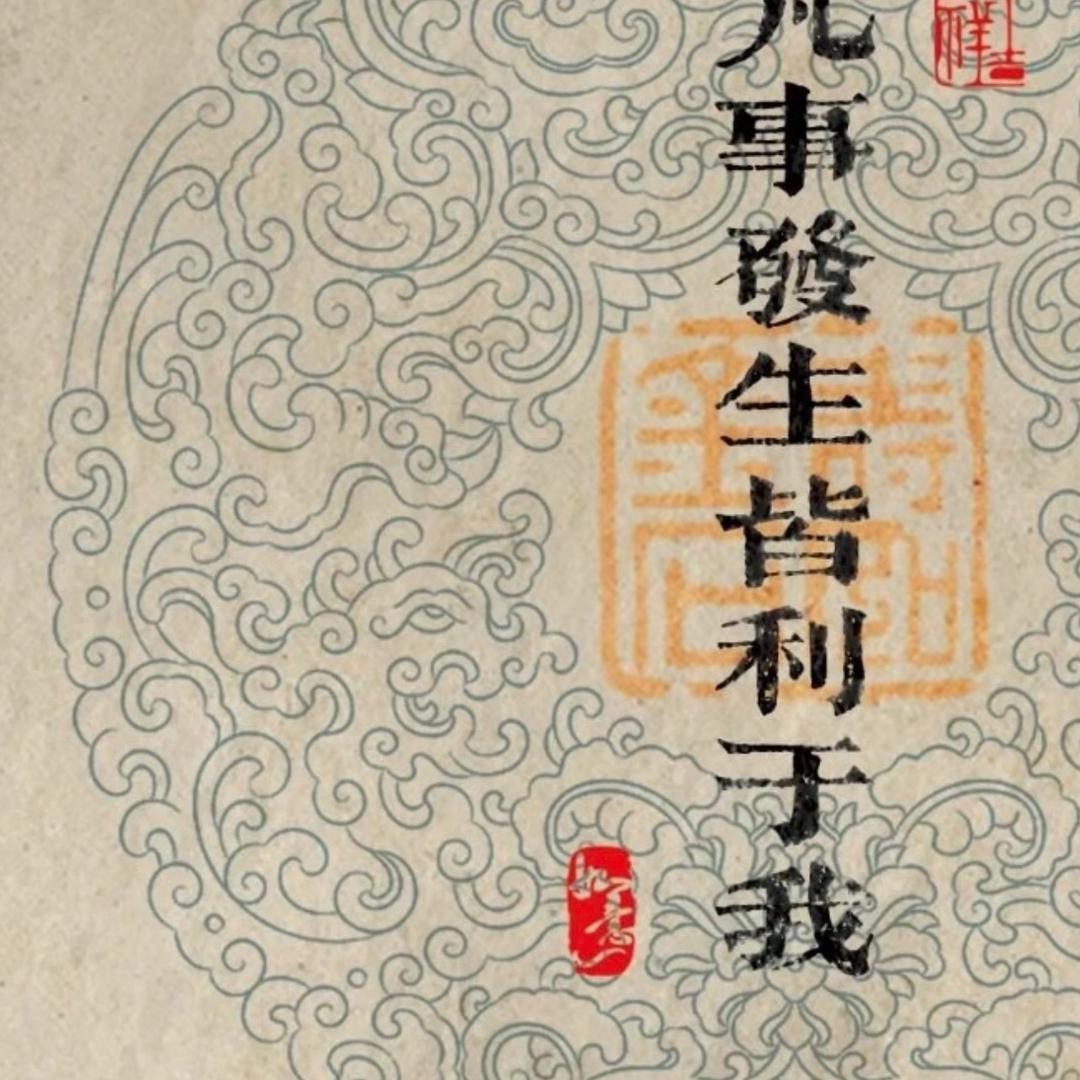 凡事發生皆利于我
如意